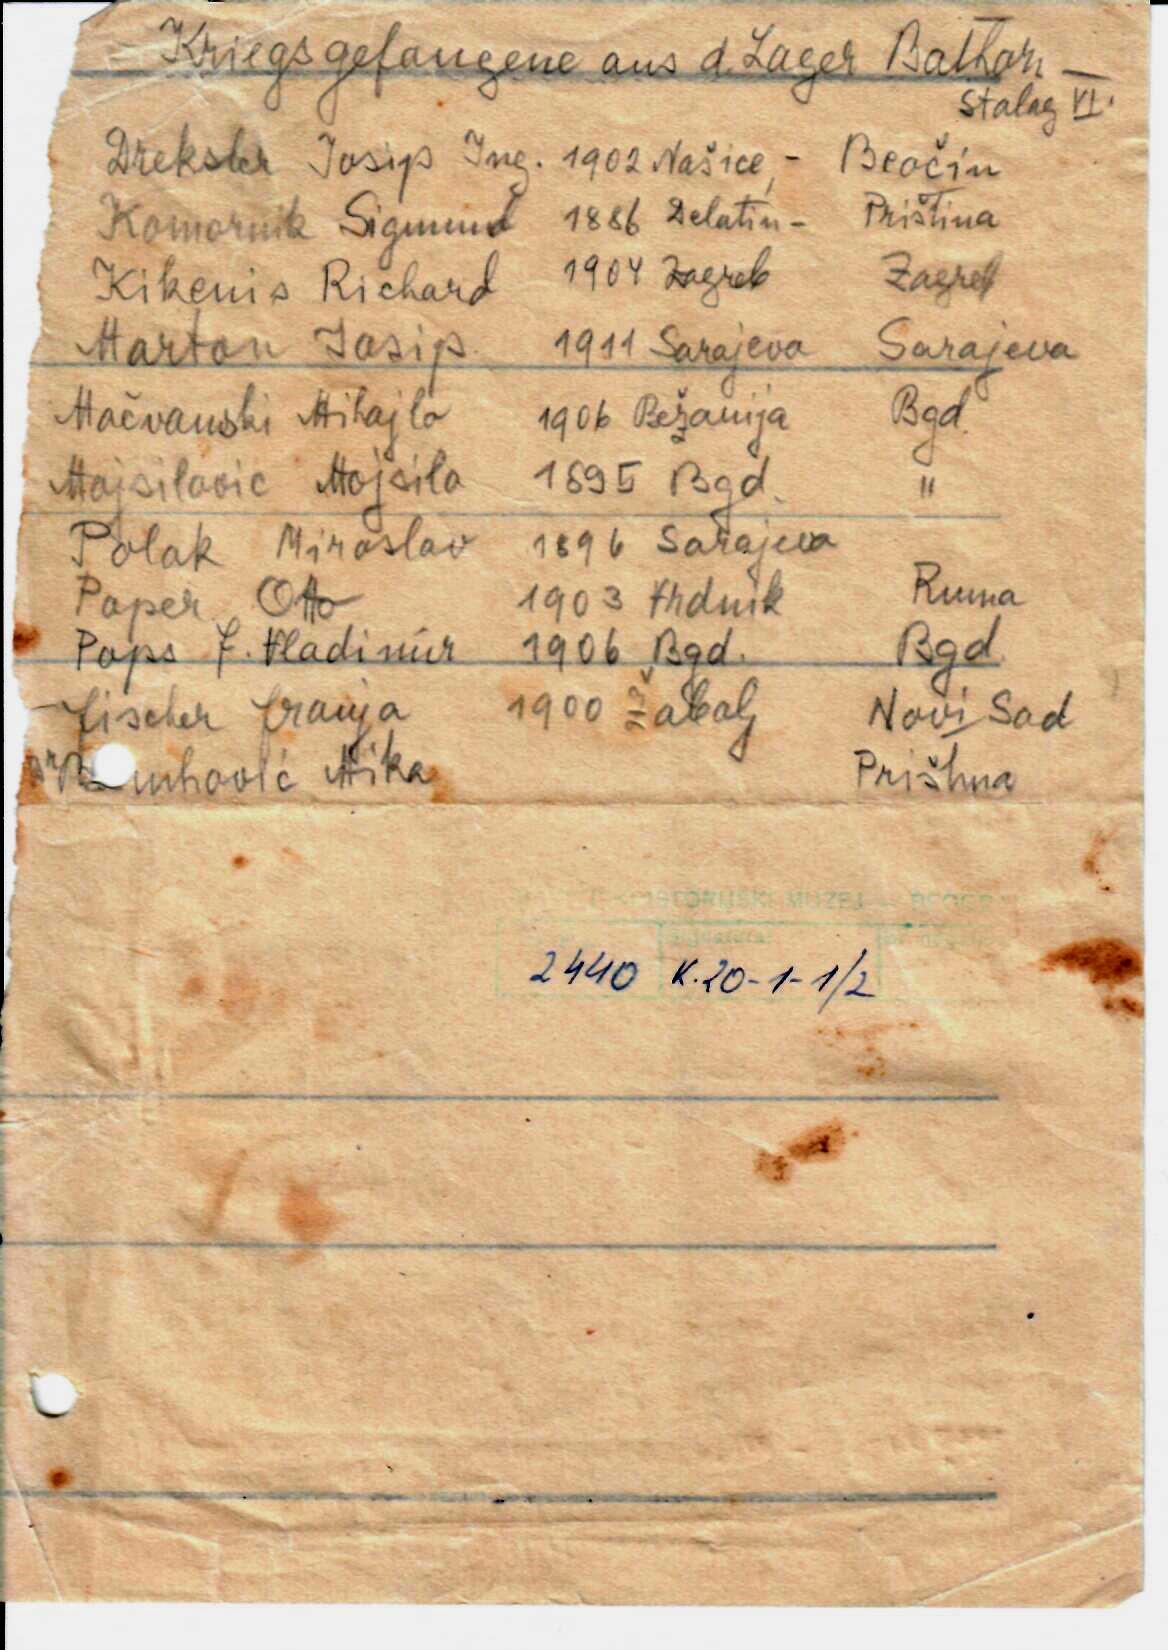 Kriegsgefangene aus d. Lager Bathorn
Stalag VI.
Dreksler Josip Ing. 1902 Našice, - Beočin
Komornik Sigmund 1886 Delatin - Priština
Kikenis Richard 1904 Zagreb Zagreb
Marton Josip 1911 Sarajevo Sarajevo
Mačvanski Mihajlo 1906 Bežanija Bgd.
Mojsilović Mojsilo 1895 Bgd. "
Polak Miroslav 1896 Sarajevo
Paper Otto 1903 Vrdnik Ruma
Paps J. Vladimir 1906 Bgd. Bgd.
Fischer Franja 1900 Žabalj Novi Sad
Dr Mika Priština
ISTORIJSKI MUZEJ - BEOGRAD
Signatura:
2440 K.20-1-1/2